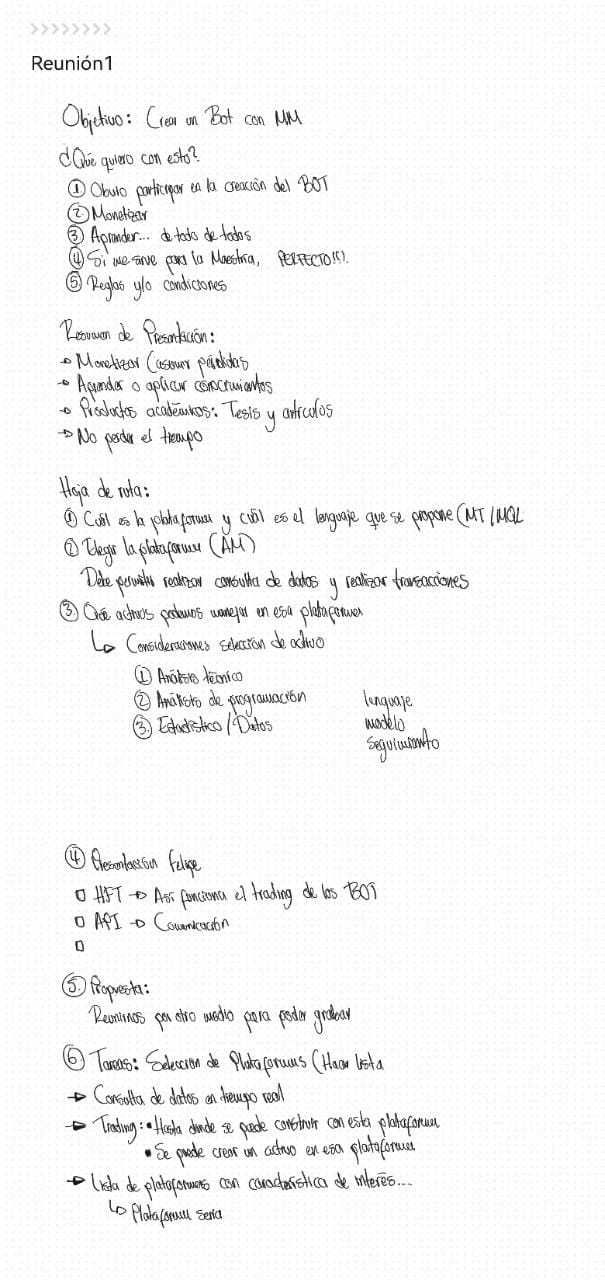 Reunión1
Objetivo: Crear un Bot con MM
¿Qué quiero con esto?
① Obvio participar en la creación del BOT
② Monetizar
③ Aprender... de todo de todos
④ Si me sirve para la Maestria, PERFECTO!!!.
⑤ Reglas y/o condiciones
Resumen de Presentación:
→ Monetizar (asumir pérdidas
→ Aprender o aplicar conocimientos
→ Productos académicos: Tesis y artículos
→ No perder el tiempo
Hoja de ruta:
① Cuál es la plataforma y cuál es el lenguaje que se propone (MT/MQL
② Elegir la plataforma (AM)
Debe permitir realizar consulta de datos y realizar transacciones
③ Qué activos podemos manejar en esa plataforma
↳ Consideraciones selección de activo
① Análisis técnico
② Análisis de programación
③ Estadístico/Datos
lenguaje
modelo
Seguimiento
④ Presentación Felipe
HFT → Así funciona el trading de los BOT
API → Comunicación
⑤ Propuesta:
Reunirnos por otro medio para poder grabar
⑥ Tareas: Selección de Plataformas (Hacer lista
→ Consulta de datos en tiempo real
→ Trading: • Hasta dónde se puede construir con esta plataforma
• Se puede crear un activo en esa plataforma
→ Lista de plataformas con característica de interés...
↳ Plataforma seria